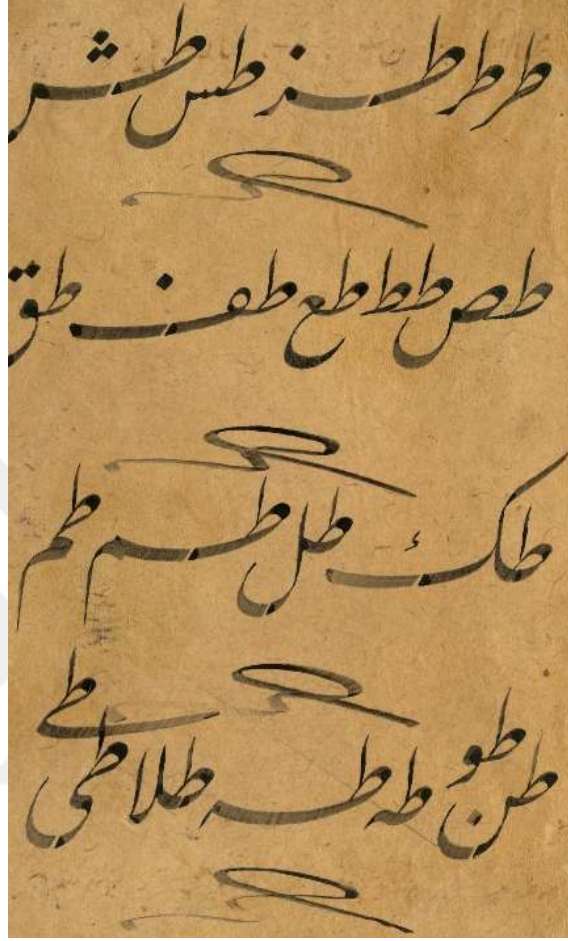 طر طر طـز طس طـثر
طص طط طع طف طق
طک طل طـم طم
طن طو طه طـه طلا طی طے